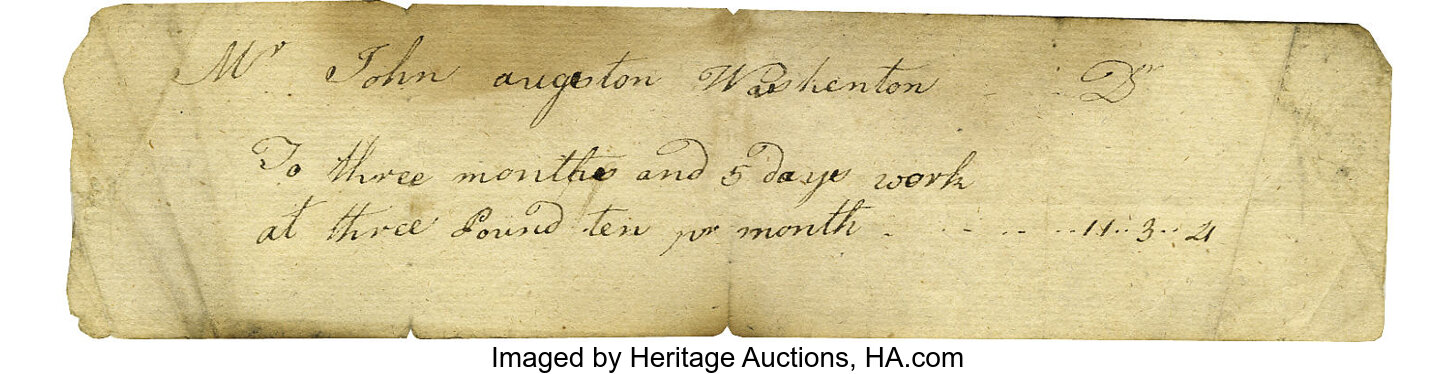 Mr John augeston Washenton Dr
To three months and 5 days work
at three Pound ten pr month - - - - - - 11 .. 3 .. 4
Imaged by Heritage Auctions, HA.com